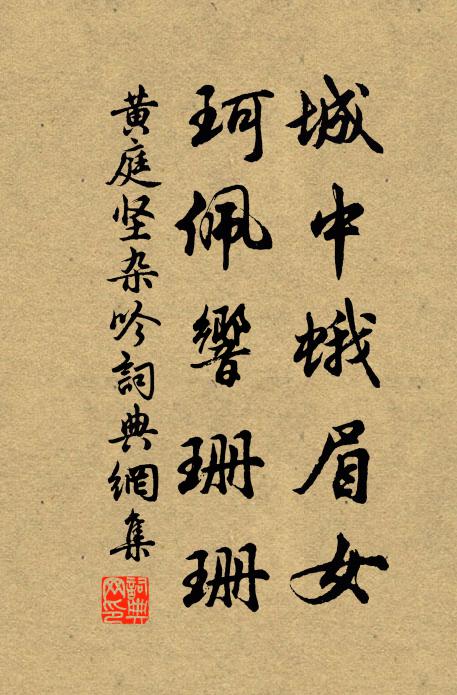 城中蛾眉女
珂佩響珊珊
黄庭坚杂吟詞典網集
詞典网印